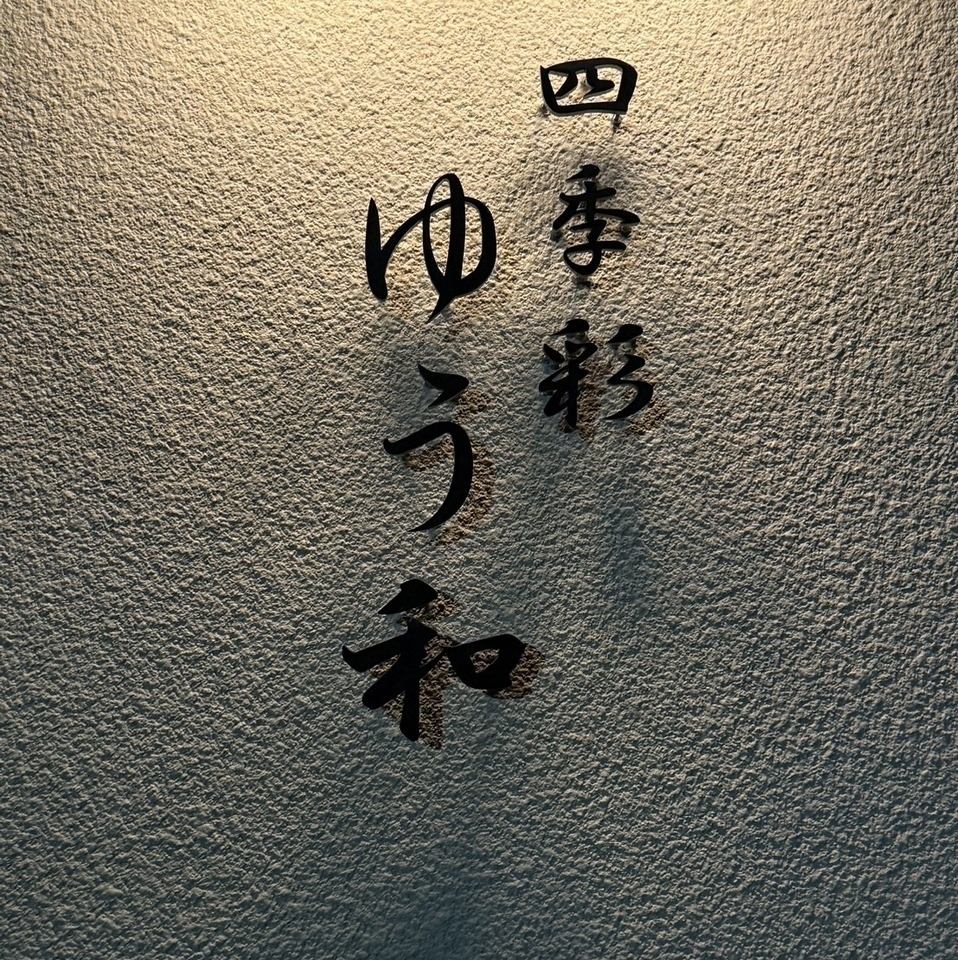 四季彩
ゆう和